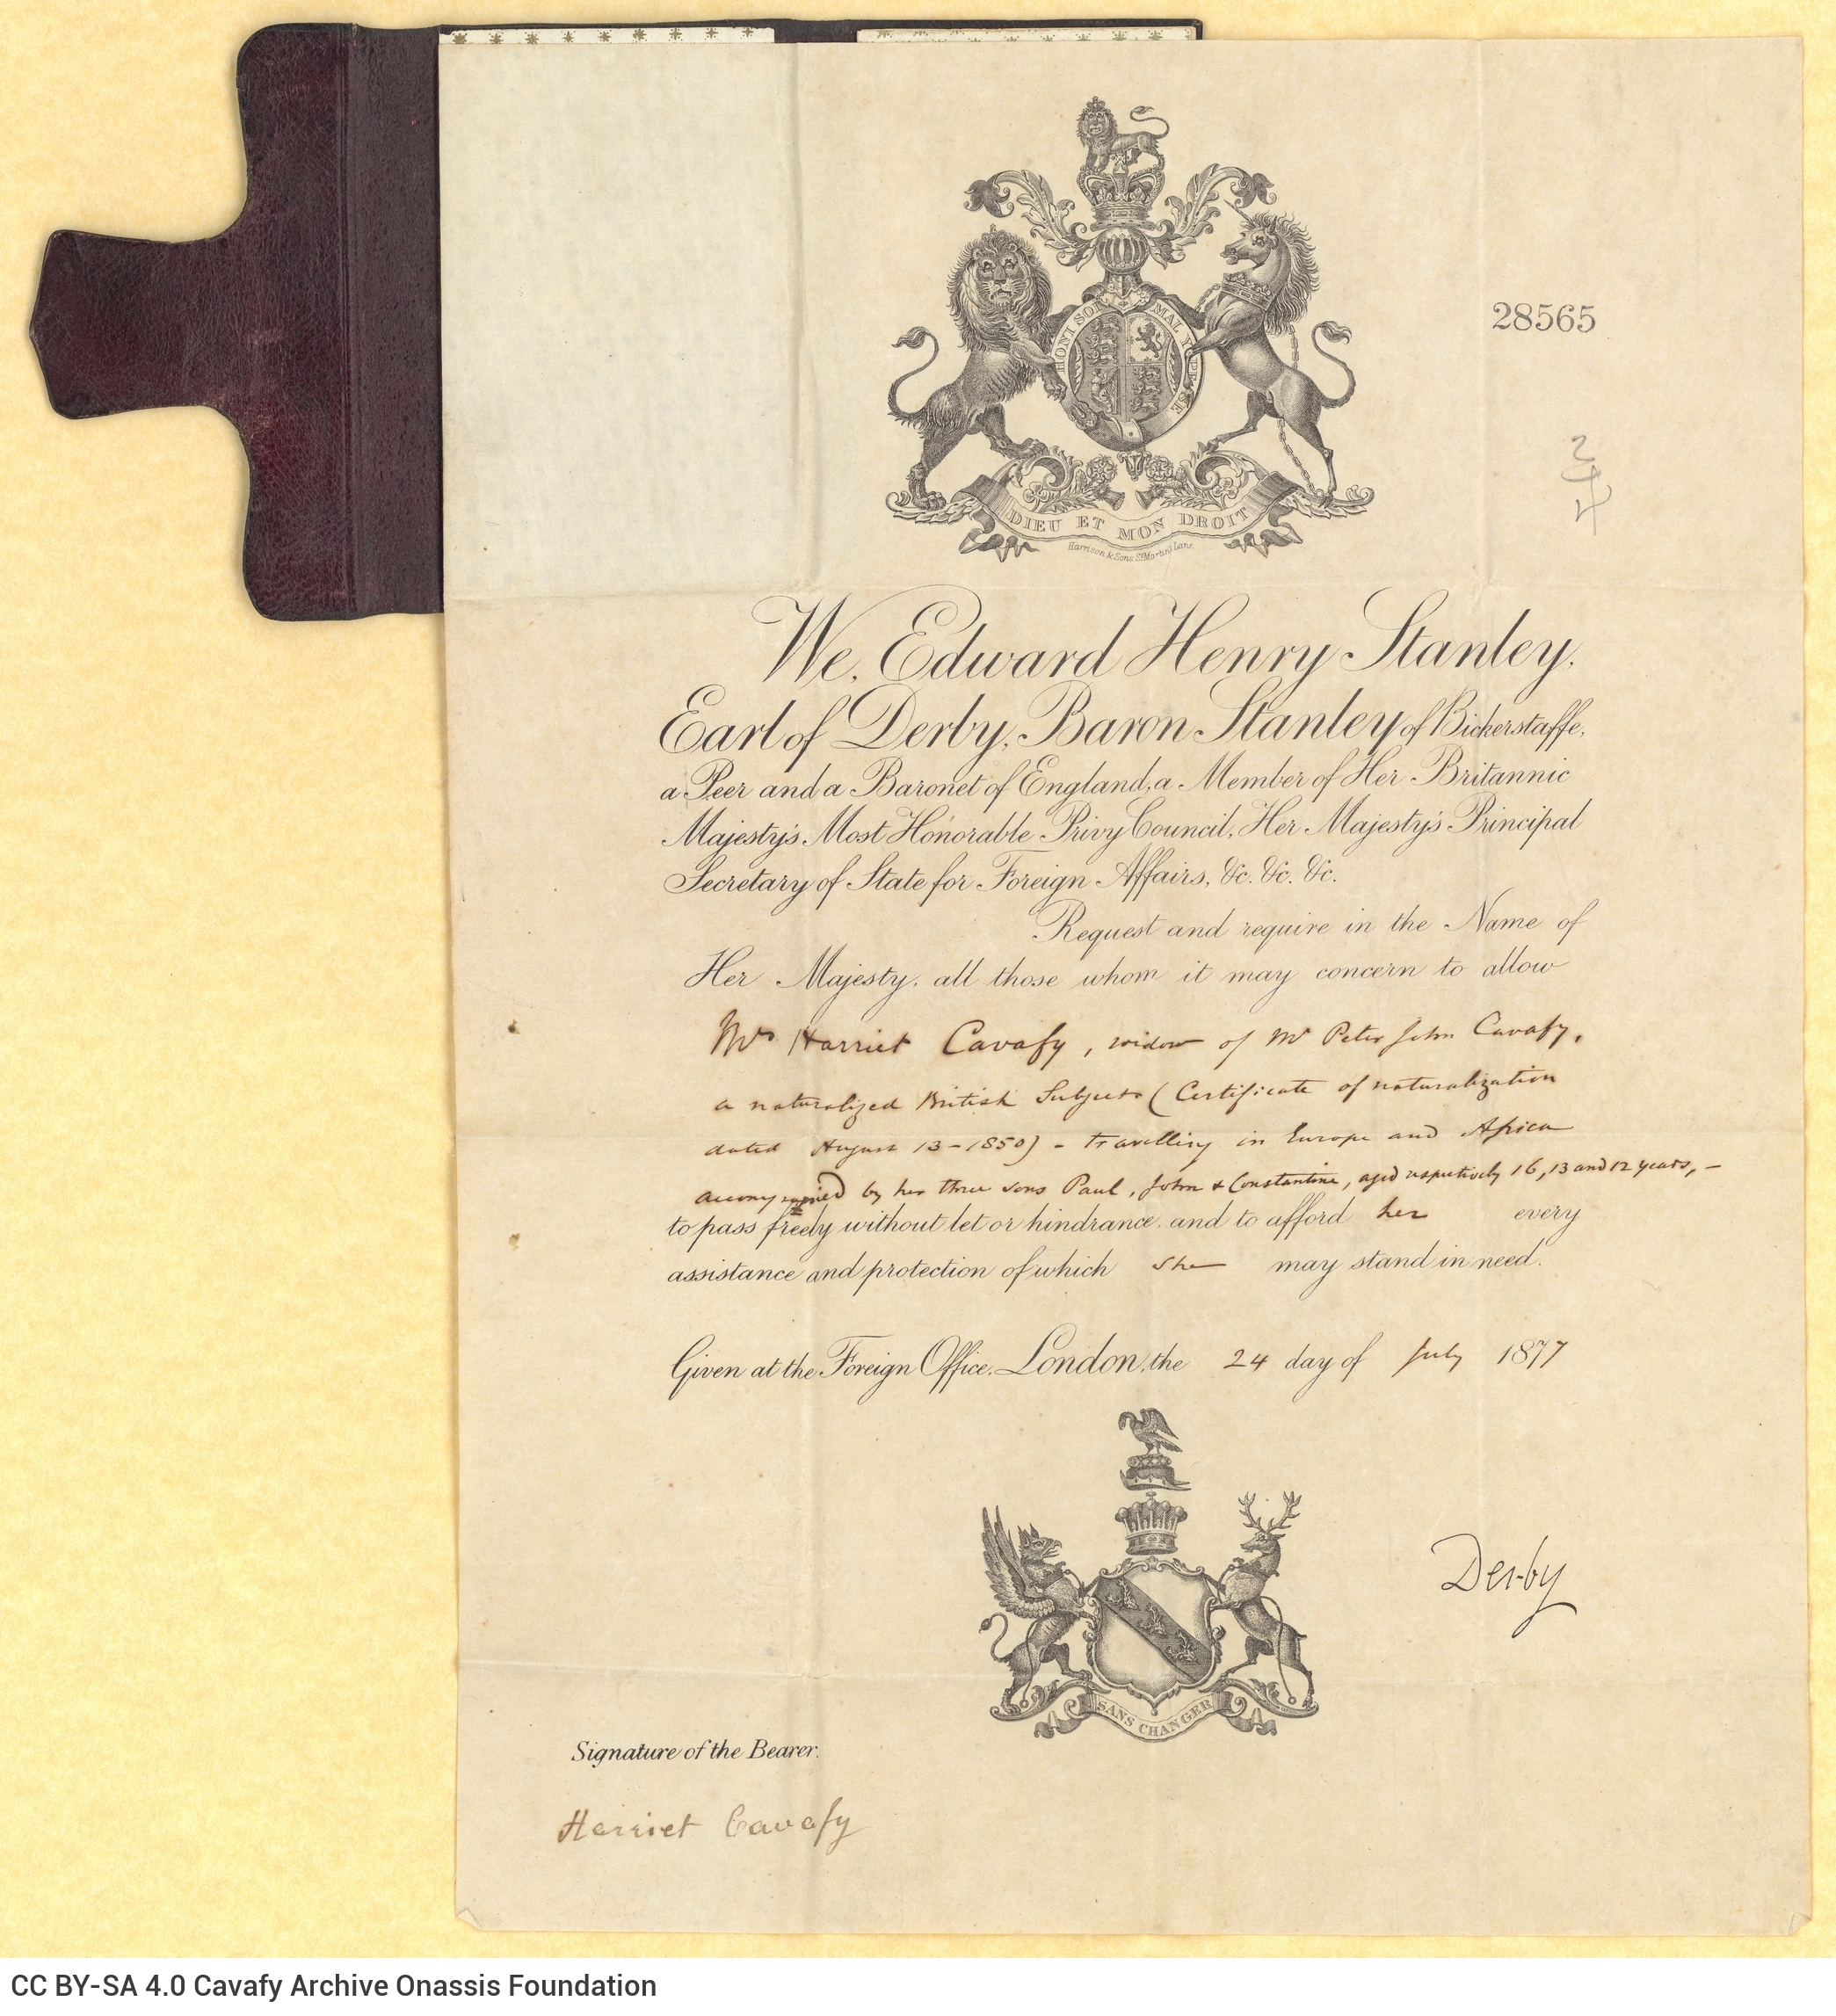 28565
HONI SOIT QUI MAL Y PENSE
DIEU ET MON DROIT
Harrison & Sons, St. Martin's Lane
We, Edward Henry Stanley,
Earl of Derby, Baron Stanley of Bickerstaffe,
a Peer and a Baronet of England, a Member of Her Britannic
Majesty's Most Honorable Privy Council, Her Majesty's Principal
Secretary of State for Foreign Affairs, &c. &c. &c.
Request and require in the Name of
Her Majesty, all those whom it may concern to allow
Mrs Harriet Cavafy, widow of Mr Peter John Cavafy,
a naturalized British Subject (Certificate of naturalization
dated August 13-1850) - travelling in Europe and Africa
accompanied by her three sons Paul, John & Constantine, aged respectively 16, 13 and 12 years, -
to pass freely without let or hindrance, and to afford her every
assistance and protection of which she may stand in need.
Given at the Foreign Office, London, the 24 day of July 1877
Derby
SANS CHANGER
Signature of the Bearer.
Harriet Cavafy
CC BY-SA 4.0 Cavafy Archive Onassis Foundation